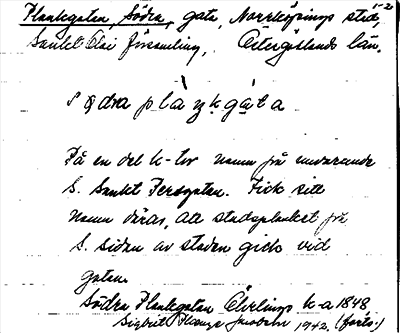 1-2
Plankgatan, Södra, gata, Norrköpings stad,
Sankt Olai församling, Östergötlands län.
På en del k-tor namn på nuvarande
S. Sankt Persgatan. Fick sitt
namn därav, att stadsplanket på
S. sidan av staden gick vid
gatan.
Södra Plankgatan Öhrlings k-a 1848
Sigbrit Plænge Jacobson 1942. (forts.)